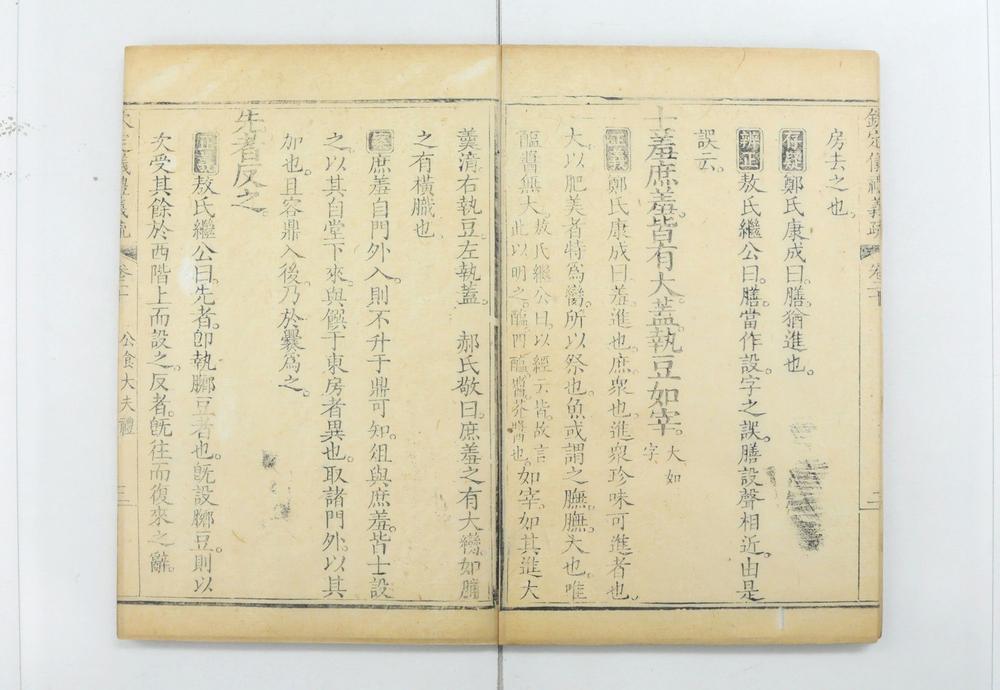 欽定儀禮義疏 卷二十 二
房去之也。
存疑 鄭氏康成曰。膳。猶進也。
辨正 敖氏繼公曰。膳當作設。字之誤。膳設聲相近。由是
誤云。
士羞庶羞。皆有大。蓋。執豆如宰。 大如字
正義 鄭氏康成曰。羞。進也。庶。衆也。進衆珍味可進者也。
大。以肥美者特爲臠。所以祭也。魚或謂之膴。膴。大也。唯
醢醬無大。 敖氏繼公曰。以經云皆。故言此以明之。醢。四醢。醬。芥醬也。 如宰。如其進大
羹湇。右執豆。左執蓋。 郝氏敬曰。庶羞之有大臠。如腒
之有橫臘也。
案 庶羞自門外入。則不升于鼎可知。俎與庶羞。皆士設
之。以其自堂下來。與饌于東房者異也。取諸門外。以其
加也。且容鼎入後。乃於爨爲之。
先者反之。
正義 敖氏繼公曰。先者。卽執膷豆者也。旣設膷豆。則以
次受其餘於西階上而設之。反者。旣往而復來之辭。
欽定儀禮義疏 卷二十 公食大夫禮 三